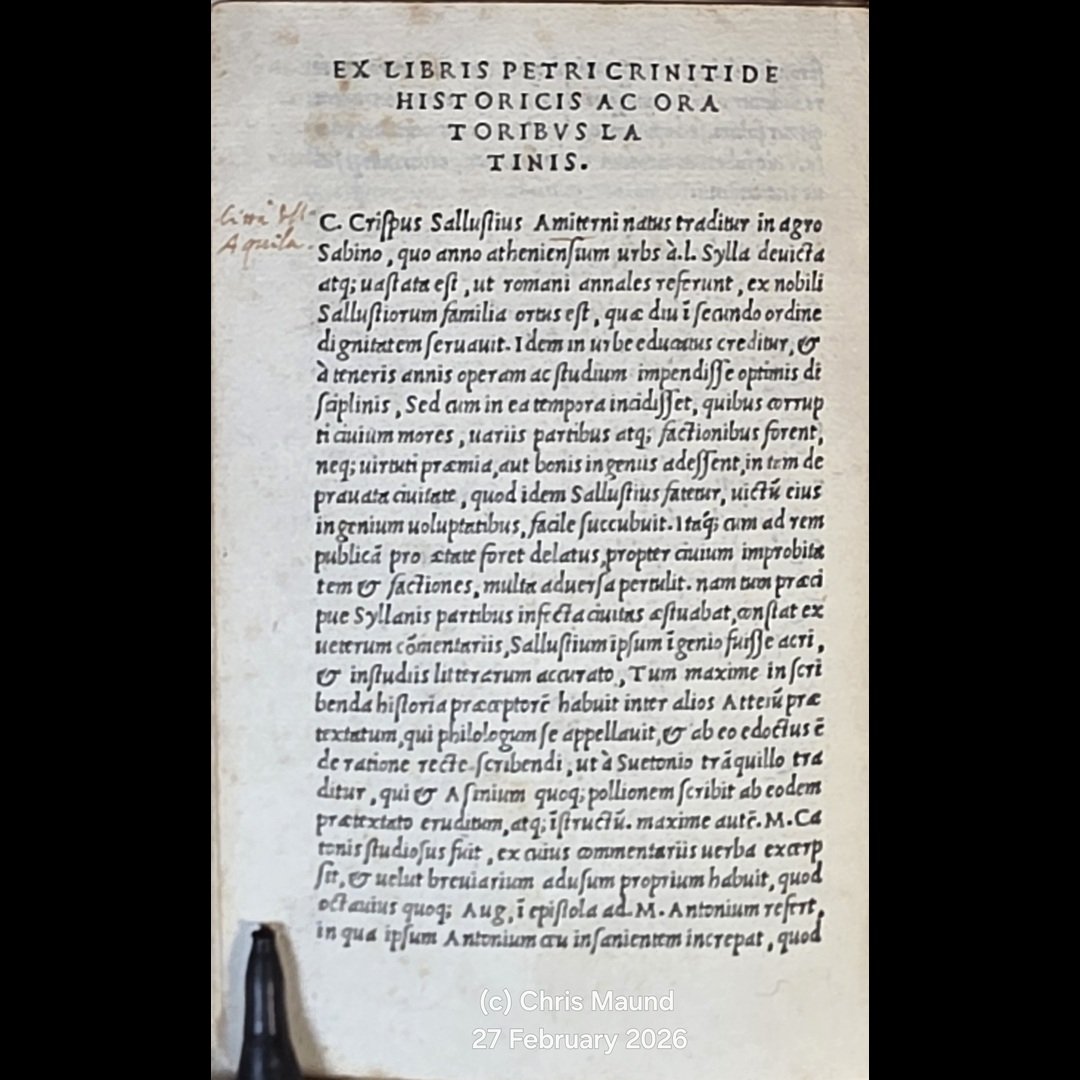 EX LIBRIS PETRI CRINITI DE
HISTORICIS AC ORA
TORIBVS LA
TINIS.
Aquila.
C. Criſpus Salluſtius Amiterni natus traditur in agro
Sabino, quo anno athenienſium urbs à.l. Sylla deuicta
atq; uaſtata eſt, ut romani annales referunt, ex nobili
Salluſtiorum familia ortus eſt, quæ diu ī ſecundo ordine
dignitatem ſeruauit. Idem in urbe educatus creditur, &
à teneris annis operam ac ſtudium impendiſſe optimis di
ſciplinis, Sed cum in ea tempora incidiſſet, quibus corrup
ti ciuium mores, uariis partibus atq; factionibus forent,
neq; uirtuti præmia, aut bonis ingeniis adeſſent, in tam de
prauata ciuitate, quod idem Salluſtius fatetur, uictū eius
ingenium uoluptatibus, facile ſuccubuit. Itaq; cum ad rem
publicā pro ætate foret delatus, propter ciuium improbita
tem & factiones, multa aduerſa pertulit. nam tum præci
pue Syllanis partibus infecta ciuitas æſtuabat, conſtat ex
ueterum cōmentariis, Salluſtium ipſum īgenio fuiſſe acri,
& in ſtudiis litterarum accurato, Tum maxime in ſcri
benda hiſtoria præceptorē habuit inter alios Atteiū præ
textatum, qui philologum ſe appellauit, & ab eo edoctus ē
de ratione recte ſcribendi, ut à Suetonio trāquillo tra
ditur, qui & Aſinium quoq; pollionem ſcribit ab eodem
prætextato eruditum, atq; īſtructū. maxime autē. M. Ca
tonis ſtudioſus fuit, ex cuius commentariis uerba excerp
ſit, & uelut breuiarium ad uſum proprium habuit, quod
octauius quoq; Aug, ī epiſtola ad. M. Antonium refert,
in qua ipſum Antonium ceu inſanientem increpat, quod
(c) Chris Maund
27 February 2026